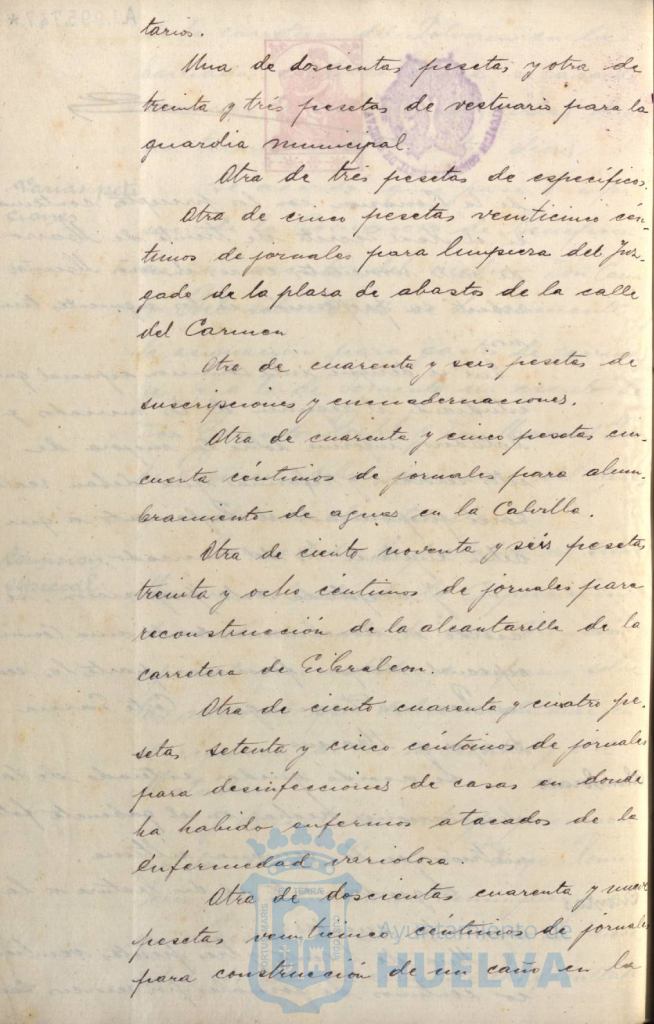 tarios.
Una de doscientas pesetas y otra de
treinta y tres pesetas de vestuario para la
guardia municipal.
Otra de tres pesetas de específicos.
Otra de cinco pesetas veinticinco cén-
timos de jornales para limpieza del Juz-
gado de la plaza de abastos de la calle
del Carmen
Otra de cuarenta y seis pesetas de
suscripciones y encuadernaciones.
Otra de cuarenta y cinco pesetas cin-
cuenta céntimos de jornales para alum-
bramiento de aguas en la Calvilla.
Otra de ciento noventa y séis pesetas
treinta y ocho céntimos de jornales para
reconstrucción de la alcantarilla de la
carretera de Gibraleon.
Otra de ciento cuarenta y cuatro pe-
setas setenta y cinco céntimos de jornales
para desinfecciones de casas en donde
ha habido enfermos atacados de la
enfermedad variolosa.
Otra de doscientas cuarenta y nueve
pesetas veinticinco céntimos de jornales
para construcción de un caño en la
Ayuntamiento de
HUELVA